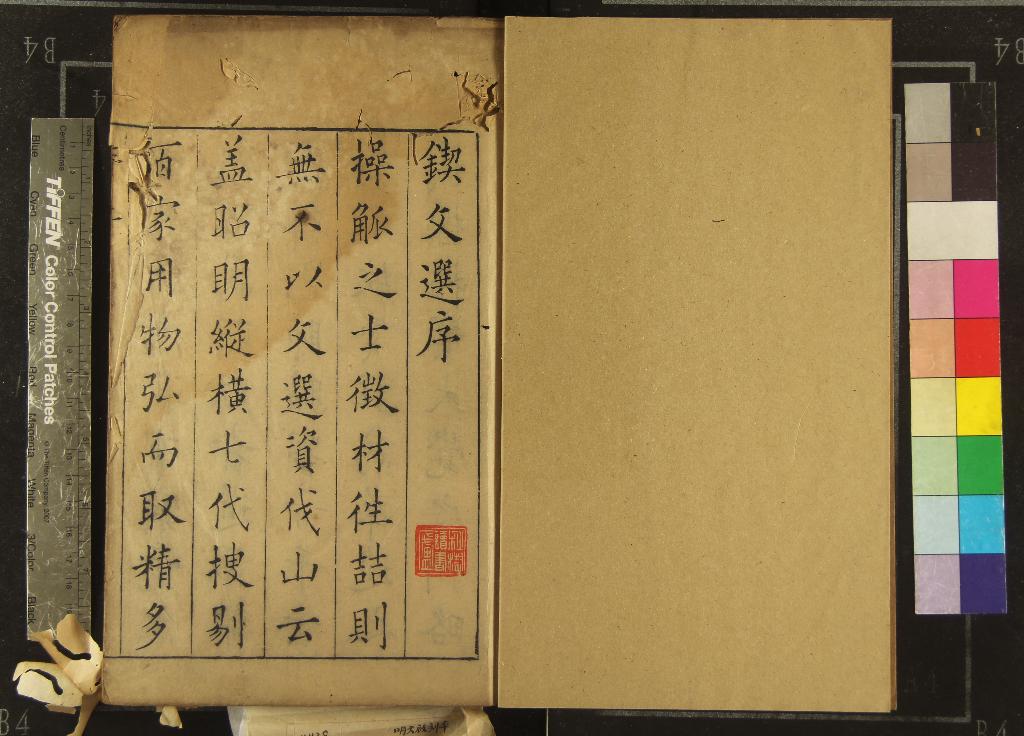 鍥文選序
操觚之士徵材徃喆則
無不以文選資伐山云
盖昭明縱橫七代搜剔
百家用物弘而取精多
TIFFEN Color Control Patches
© The Tiffen Company, 2007
Centimetres
Inches
Blue
Cyan
Green
Yellow
Red
Magenta
White
3/Color
Black
B4
B4
B4
B4